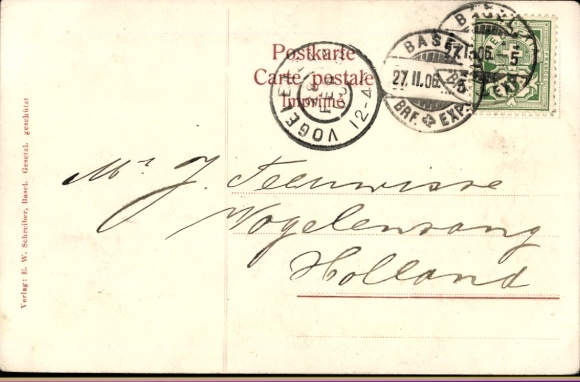 Postkarte
Carte postale
BASEL
27.II.06.
BRF. EXP.
BASEL
27.II.06.
5
EXP.
12-4
Mr J. Teeuwisse
Vogelenzang
Holland
Verlag: E. W. Schreiber, Basel. Gesetzl. geschützt